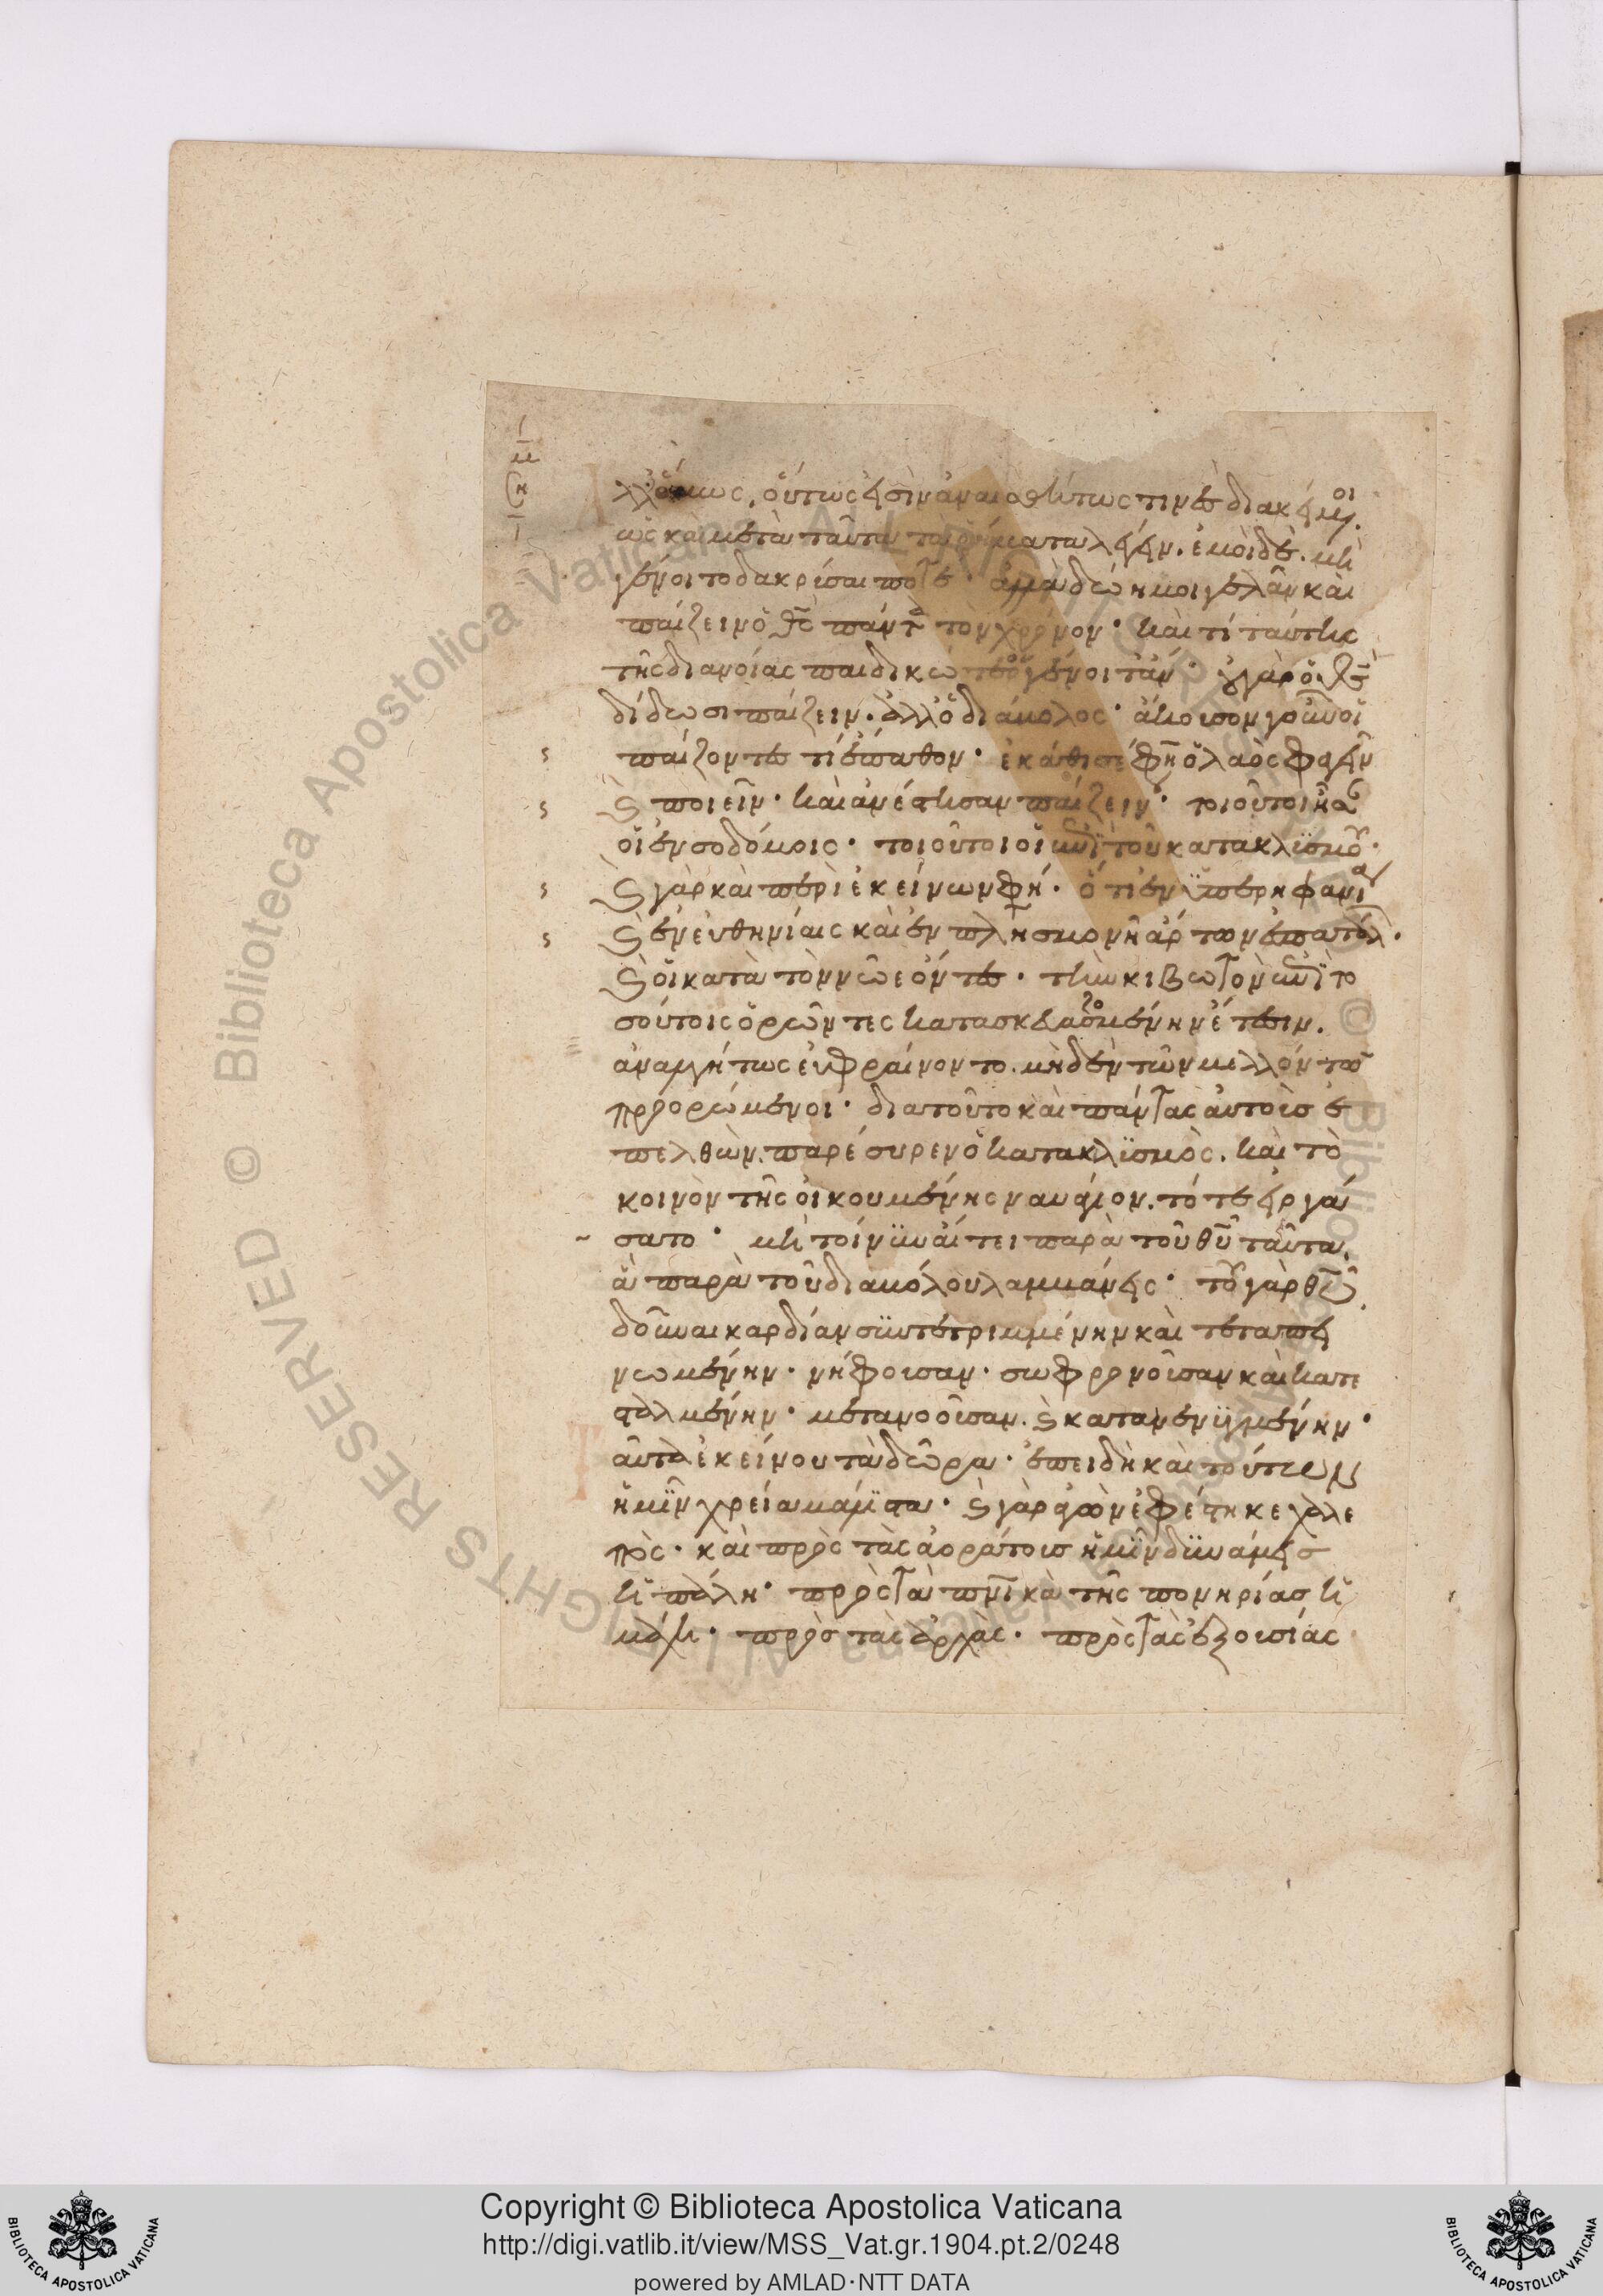 λλ' ὅμως, οὕτως εἰσὶν ἀναισθήτως τινὲς διακείμ(εν)οι
ὡς καὶ μετὰ ταῦτα τὰ ῥήματα λέγειν. ἐμοὶ δὲ μὴ
γένοιτο δακρύσαι ποτὲ· ἀλλὰ δώῃ μοι γελᾶν καὶ
παίζειν ὁ θς πάντα τὸν χρόνον· καὶ τί ταύτης
τῆς διανοίας παιδικώτερον γένοιτ' ἄν· οὐ γὰρ ὁ θς
δίδωσι παίζειν. ἀλλ' ὁ διάβολος· ἄκουσον γοῦν οἱ
παίζοντες τί ἔπαθον· ἐκάθισέ φησιν ὁ λαὸς φαγεῖν
καὶ ποιεῖν· καὶ ἀνέστησαν παίζειν· τοιοῦτοι ἦσαν
οἱ ἐν σοδόμοις· τοιοῦτοι οἱ ἐπὶ τοῦ κατακλϋσμοῦ·
καὶ γὰρ καὶ περὶ ἐκείνων φησὶ· ὅτι ἐν ϋπερηφανίᾳ
καὶ ἐν εὐθηνίαις καὶ ἐν πλησμονῇ ἄρτων ἐσπατάλων·
καὶ οἱ κατὰ τὸν νῶε ὄντες· τὴν κιβωτὸν ἐπὶ το
σούτοις ὁρῶντες κατασκευαζομένην ἔτεσιν.
ἀναλγήτως εὐφραίνοντο. μηδὲν τῶν μελλόντων
προορώμενοι· διατοῦτο καὶ πάντας αὐτοὺς ἐ
πελθὼν παρέσυρεν ὁ κατακλϋσμὸς. καὶ τὸ
κοινὸν τῆς οἰκουμένης ναυάγιον. τότε εἰργά
σατο· μὴ τοίνϋν αἴτει παρὰ τοῦ θυ ταῦτα,
ἃ παρὰ τοῦ διαβόλου λαμβάνεις· τοῦ γὰρ θυ
δοῦναι καρδίαν σϋντετριμμένην καὶ τεταπει
νωμένην· νήφουσαν· σωφρονοῦσαν καὶ κατε
σταλμένην· μετανοοῦσαν. καὶ κατανενϋγμένην·
αὐτὰ ἐκείνου τὰ δῶρα· ἐπειδὴ καὶ τούτων
ἡμῖν χρεία μάλϊστα· καὶ γὰρ ἀγὼν ἐφέστηκε χαλε
πὸς· καὶ πρὸς τὰς ἀοράτους ἡμῖν δϋνάμεις
ἡ πάλη· πρὸς τὰ πνικὰ τῆς πονηρίας ἡ
μάχη· πρὸς τὰς ἀρχὰς· πρὸς τὰς ἐξουσίας
Copyright © Biblioteca Apostolica Vaticana
http://digi.vatlib.it/view/MSS_Vat.gr.1904.pt.2/0248
powered by AMLAD·NTT DATA